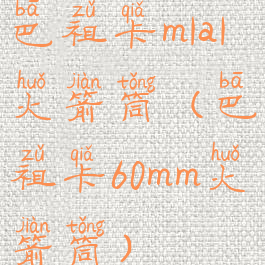 bā zǔ qiǎ
巴祖卡m1a1
huǒ jiàn tǒng bā
火箭筒(巴
zǔ qiǎ huǒ
祖卡60mm火
jiàn tǒng
箭筒)